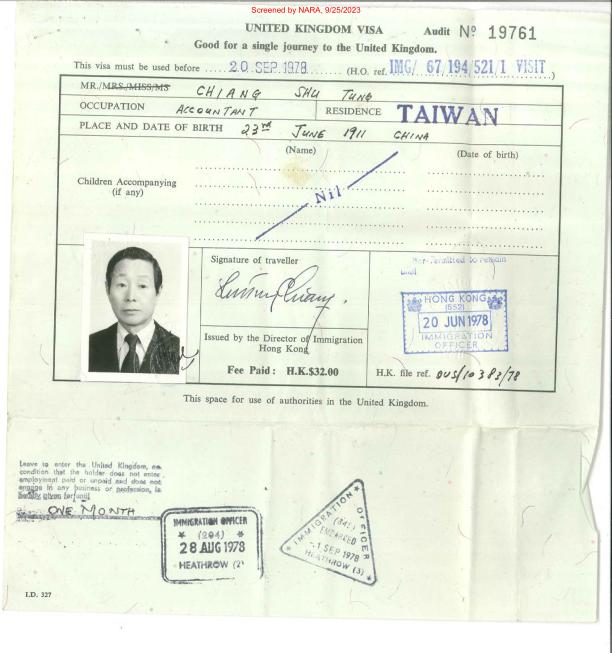 Screened by NARA, 9/25/2023
UNITED KINGDOM VISA Audit Nº 19761
Good for a single journey to the United Kingdom.
This visa must be used before 20 SEP 1978 (H.O. ref. IMG/ 67,194,521/1 VISIT )
MR./MRS./MISS/MS CHIANG SHU TUNG
OCCUPATION ACCOUNTANT RESIDENCE TAIWAN
PLACE AND DATE OF BIRTH 23rd JUNE 1911 CHINA
(Name) (Date of birth)
Children Accompanying
(if any)
Nil
Signature of traveller
Not Permitted to remain
until
HONG KONG
(552)
20 JUN 1978
IMMIGRATION
OFFICER
Issued by the Director of Immigration
Hong Kong
Fee Paid: H.K.$32.00
H.K. file ref. OVS/10383/78
This space for use of authorities in the United Kingdom.
Leave to enter the United Kingdom, on
condition that the holder does not enter
employment paid or unpaid and does not
engage in any business or profession, is
hereby given for/until
ONE MONTH
IMMIGRATION OFFICER
(204)
28 AUG 1978
HEATHROW (2)
IMMIGRATION OFFICER
EMBARKED
1 SEP 1978
HEATHROW (3)
I.D. 327